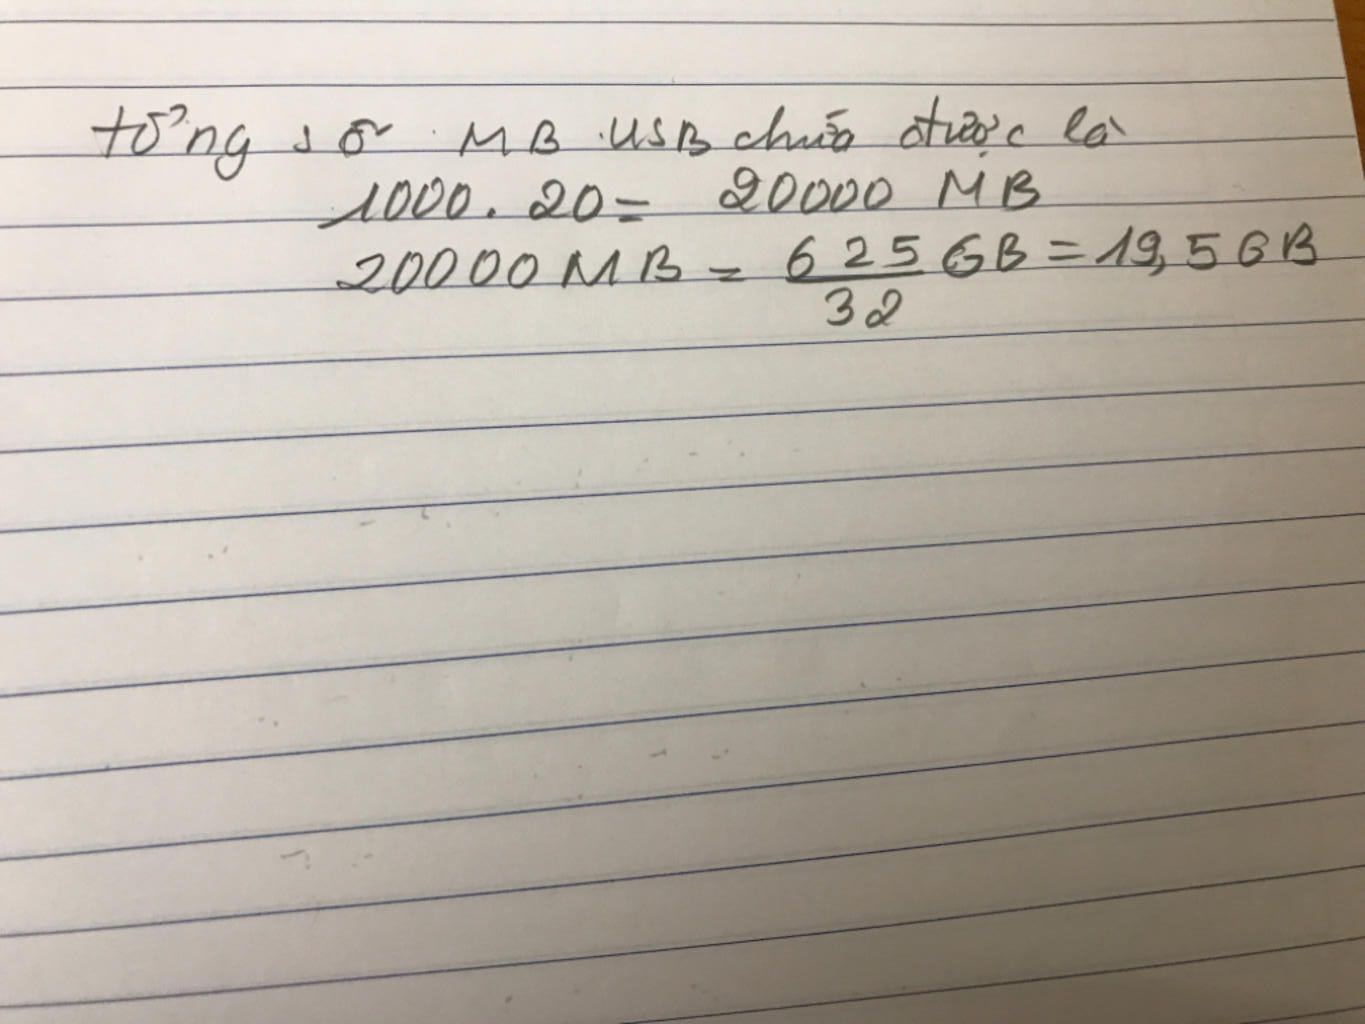 tổng số MB USB chứa được là
1000. 20 = 20000 MB
20000 MB = 625/32 GB = 19,5 GB